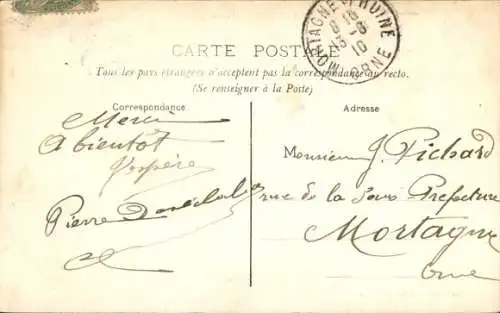 MORTAGNE-S-HUINE
8-6
10
ORNE
CARTE POSTALE
Tous les pays étrangers n'acceptent pas la correspondance au recto.
(Se renseigner à la Poste)
Correspondance
Merci
A bientôt
J'espère
Pierre
Adresse
Monsieur J. Pichard
rue de la Sous Préfecture
Mortagne
Orne